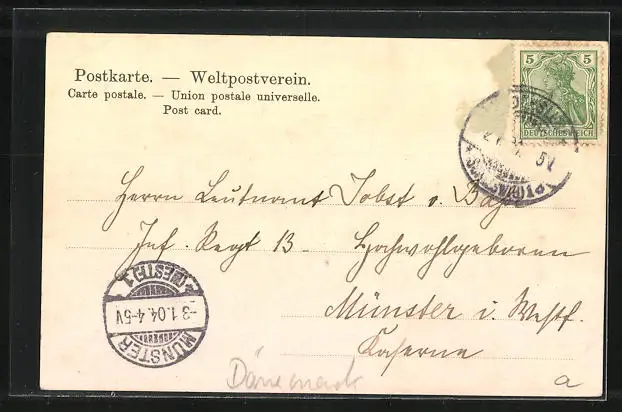 Postkarte. — Weltpostverein.
Carte postale. — Union postale universelle.
Post card.
5 5
DEUTSCHES REICH
Herrn Leutnant Jobst v.
Inf. Regt 13. Hochwohlgeboren
Münster i. Westf.
Kaserne
*(WESTF.)1
-3.1.04.4-5V
MÜNSTER
Dänemark
a